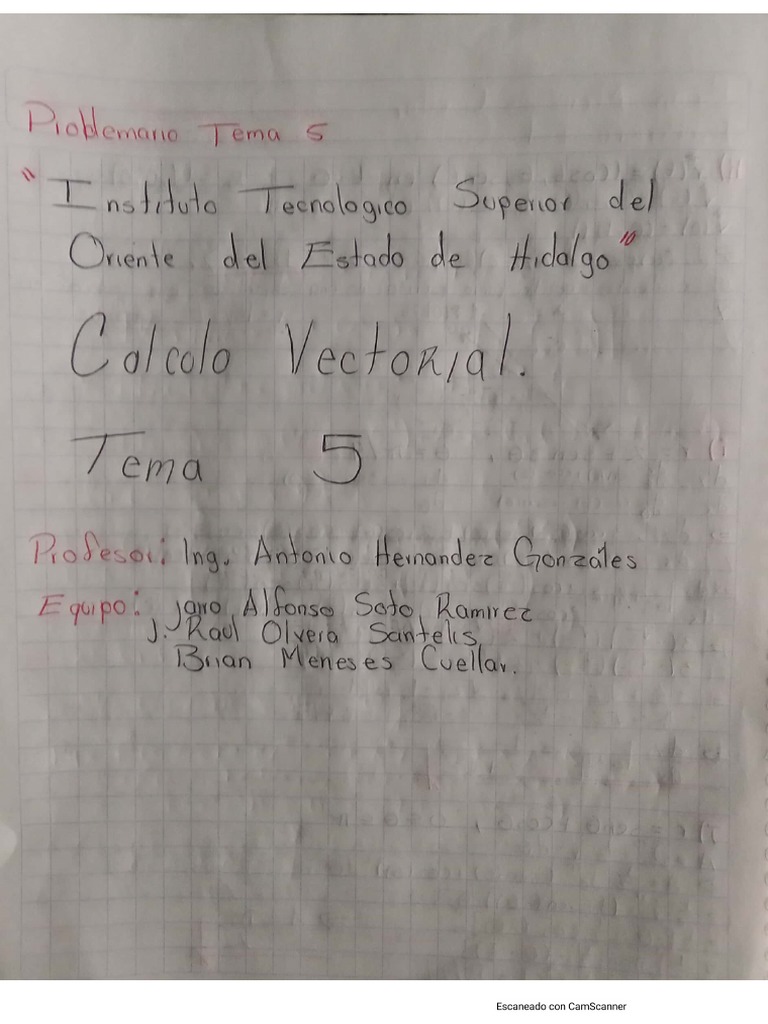 Problemario Tema 5
"Instituto Tecnologico Superior del
Oriente del Estado de Hidalgo"
Calcolo Vectorial.
Tema 5
Profesor: Ing. Antonio Hernandez Gonzáles
Equipo: Jairo Alfonso Soto Ramirez
J. Raul Olvera Santelis
Brian Meneses Cuellar.
Escaneado con CamScanner